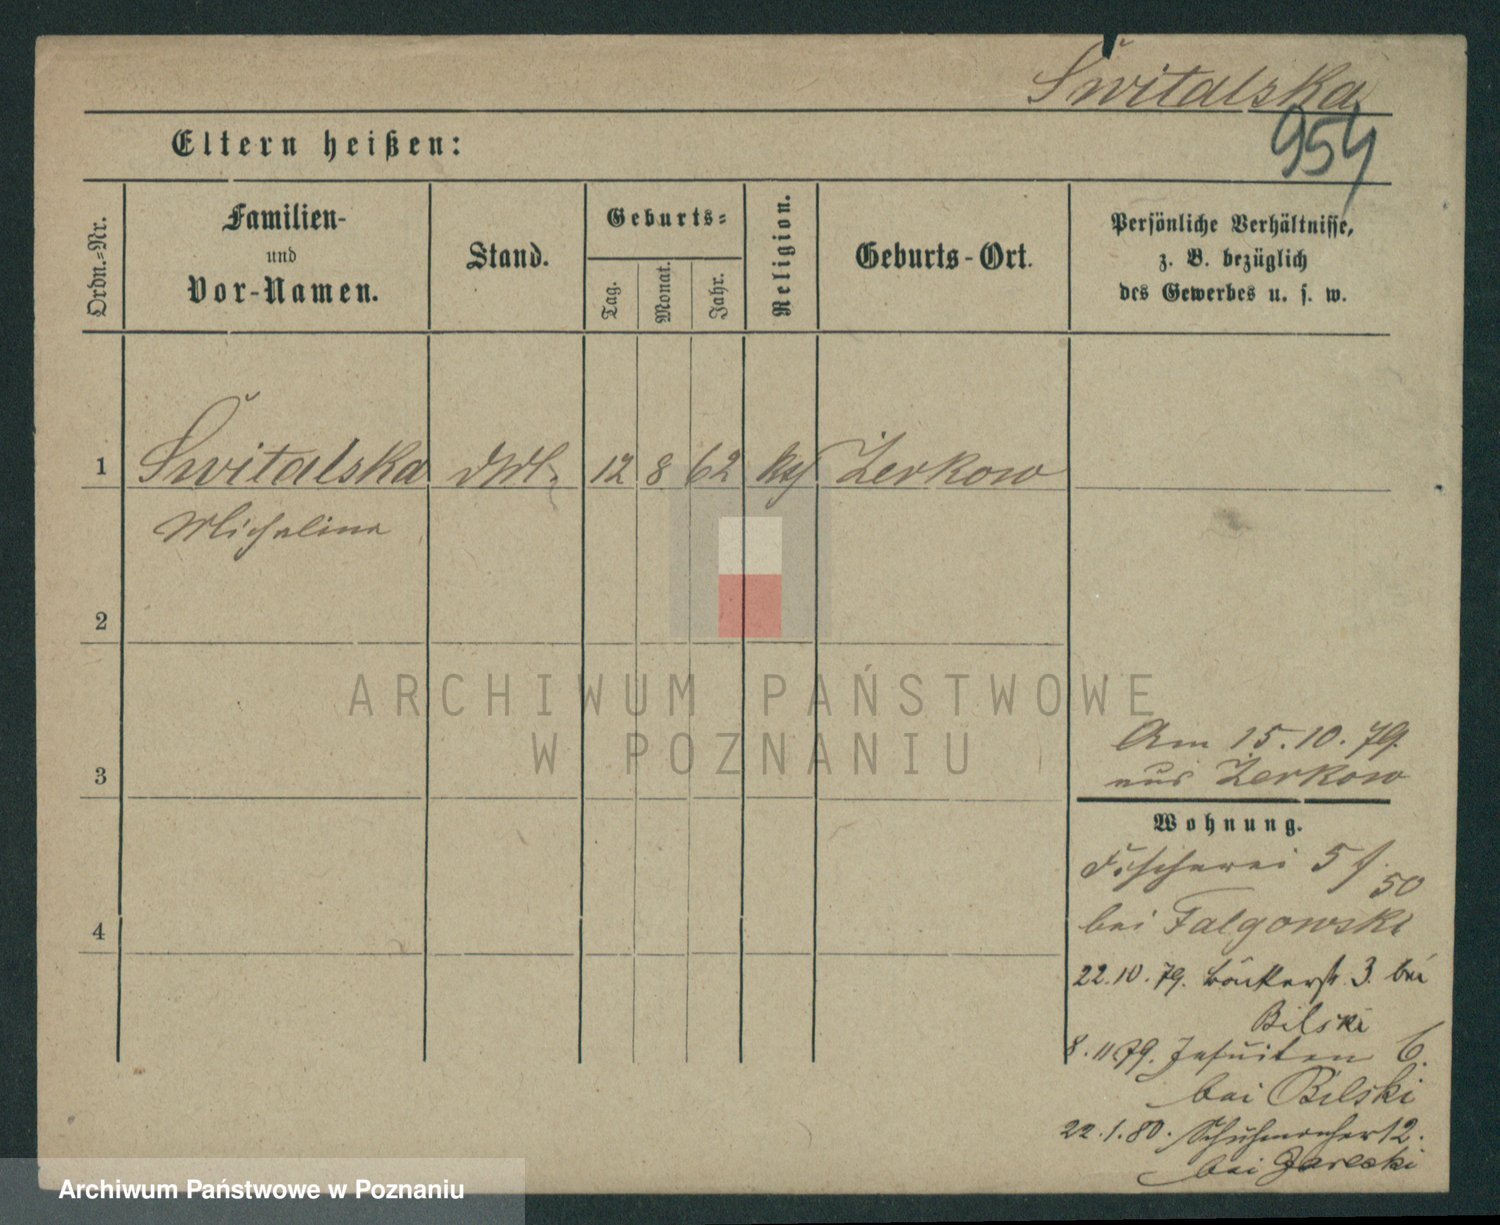 Świtalska
954
Eltern heißen:
Ordn.=Nr.
Familien-
und
Vor-Namen.
Stand.
Geburts=
Tag.
Monat.
Jahr.
Religion.
Geburts-Ort.
Persönliche Verhältnisse,
z. B. bezüglich
des Gewerbes u. s. w.
1 Świtalska 12 8 62 Żerkow
Michalina
2
3
4
Am 15.10.79.
aus Żerkow
Wohnung.
Fischerei 5
50
bei Falgowski
22.10.79. Bäckerstr. 3. bei
Bilski
8.11.79. Jesuiten 6.
bei Bilski
22.1.80. Schuhmacher 12.
bei Jarecki
ARCHIWUM PAŃSTWOWE
W POZNANIU
Archiwum Państwowe w Poznaniu